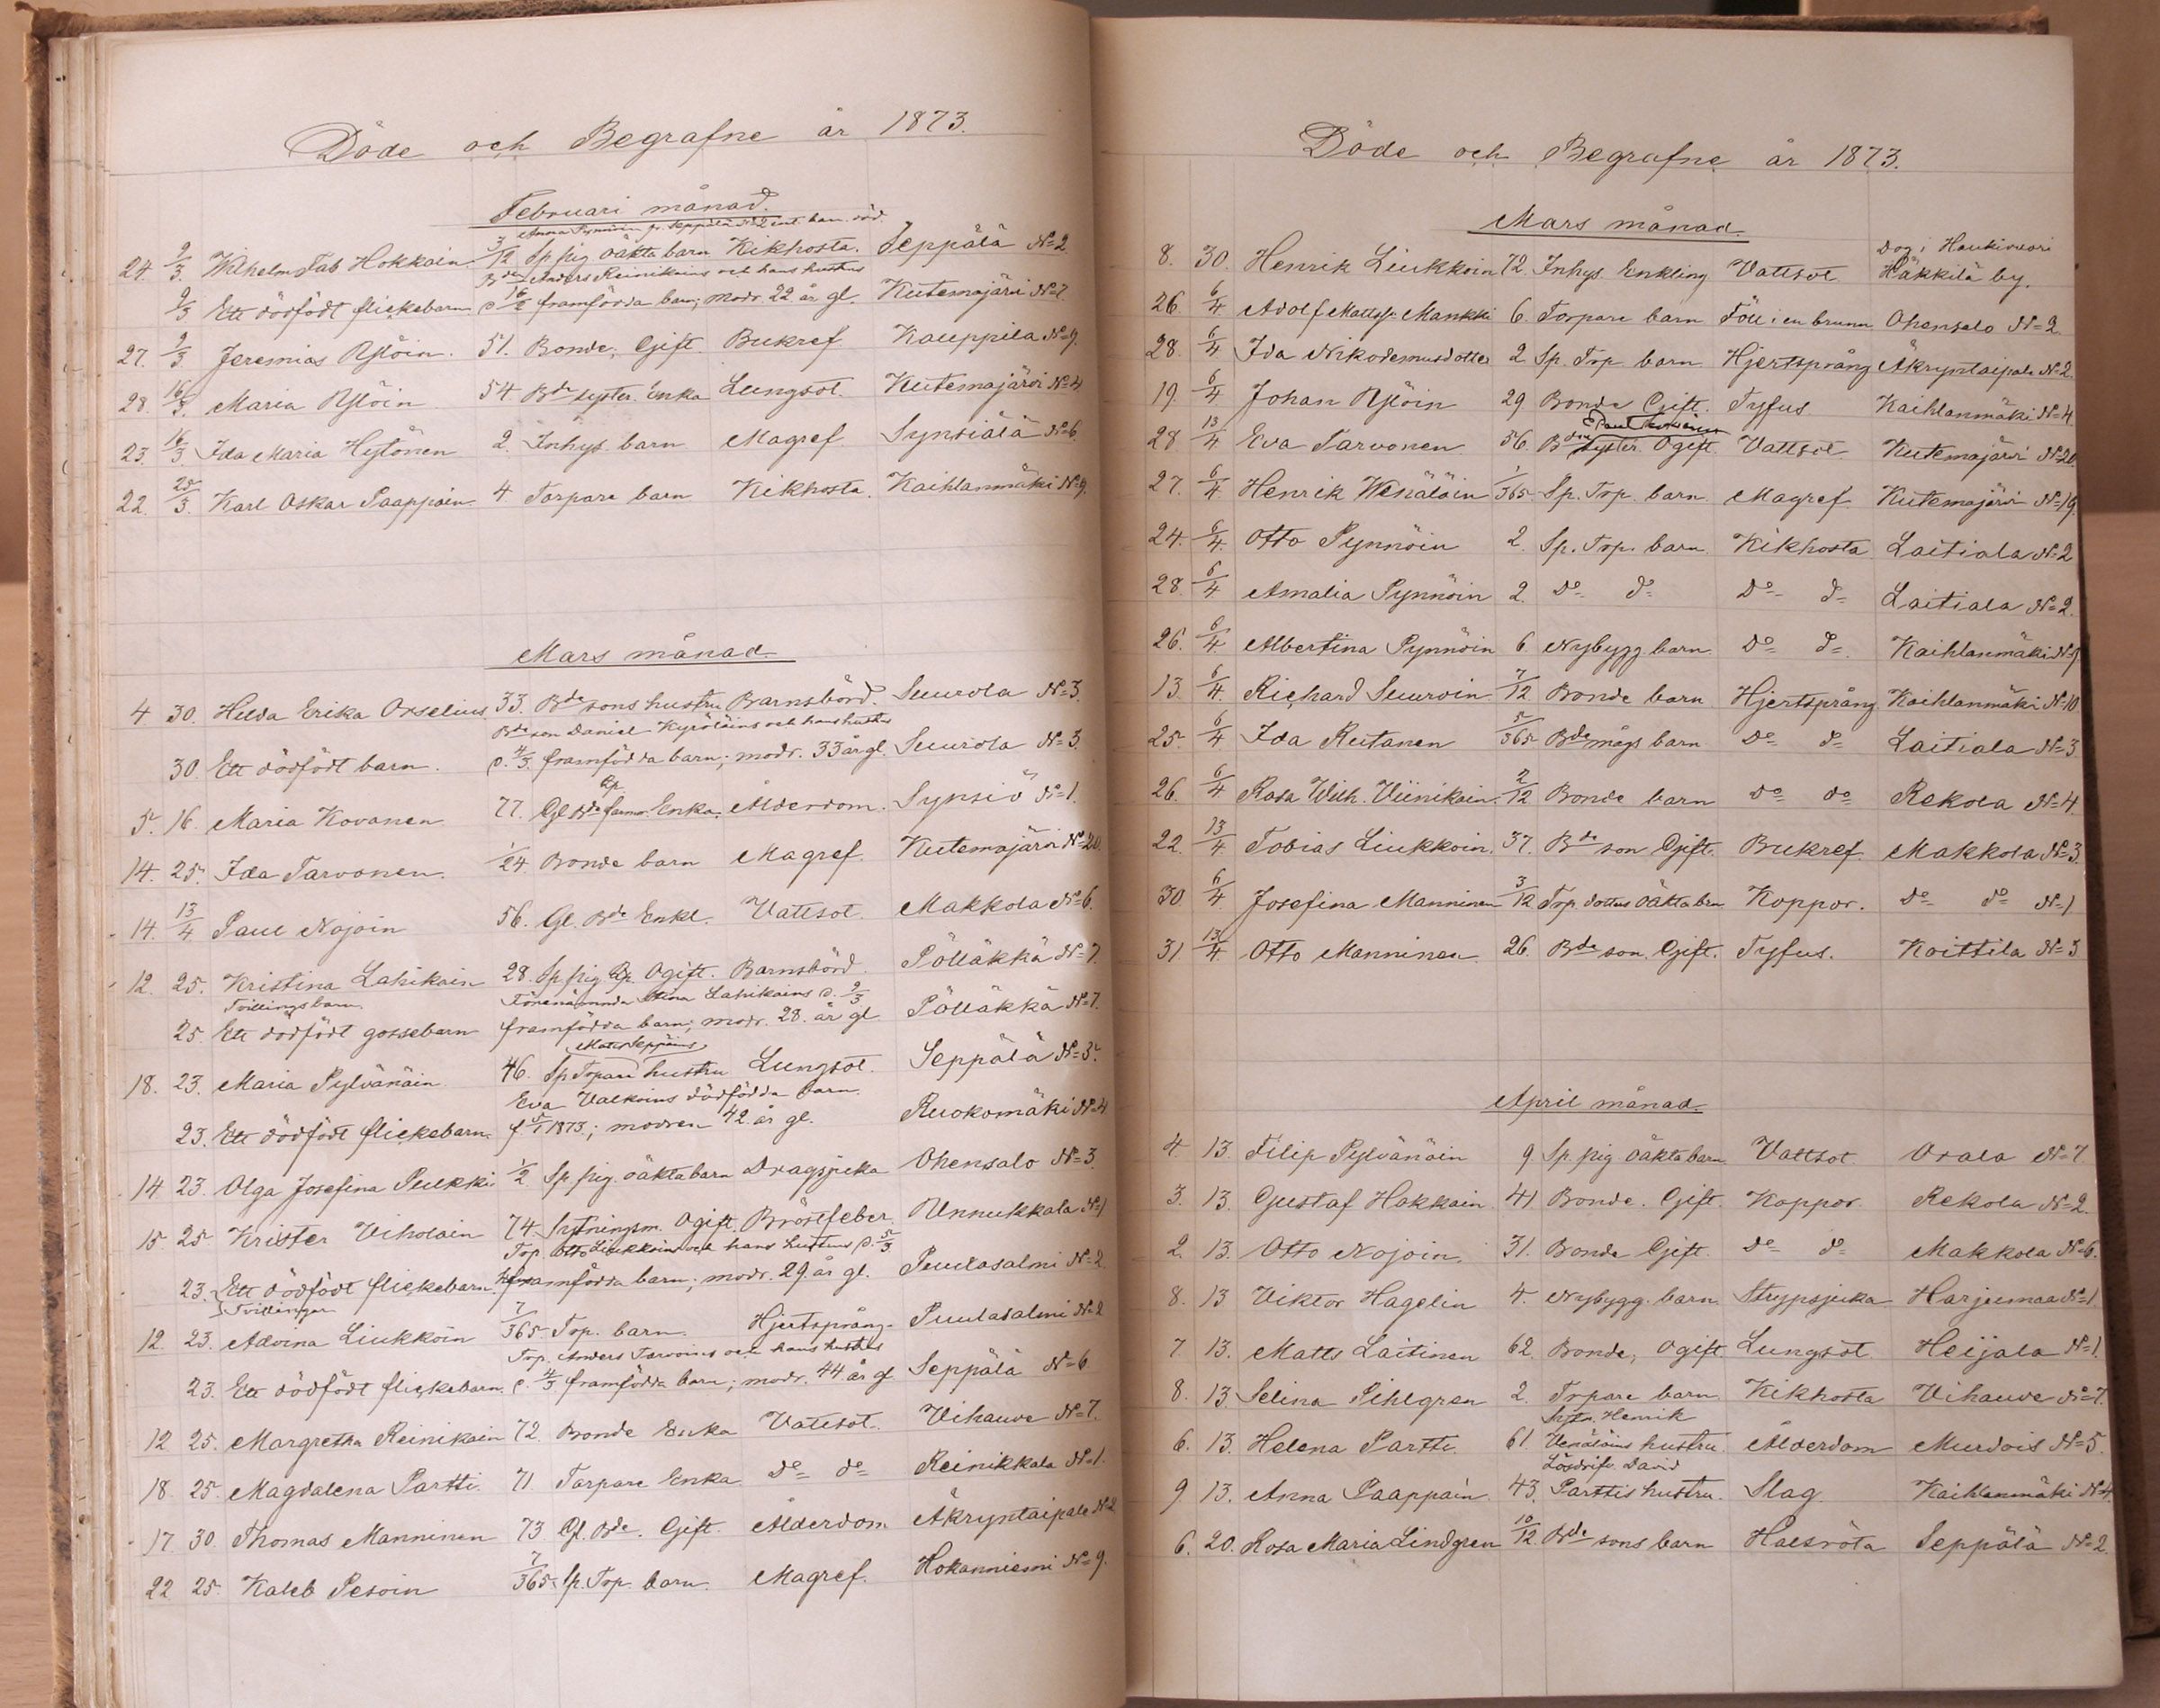 Döde och Begrafne år 1873.
Februari månad.
24. 2/3 Wilhelm Fab Hokkain 3/12 Sp pig oäkta barn Kikhosta. Seppälä No 2
Bde Anders Reinikains och hans hustrus
2/3 Ett dödfödt flickebarn framfödda barn; modr. 22 år gl. Kutemajärvi No 7
27. 2/3 Jeremias Ylöin. 51. Bonde, Gift. Bukref Kauppila No 9.
28. 16/3. Maria Ylöin 54 Bde syster. Enka Lungsot. Kutemajärvi No 4
23. 16/3 Ida Maria Hytönen 2. Inhys. barn Magref Synsiälä No 6
22. 25/3. Karl Oskar Paappain 4 Torpare barn Kikhosta. Kaihlanmäki No 9.
Mars månad.
4 30. Hilda Erika Orselius. 33. Bde sons hustru Barnsbörd. Suurola No 3.
Bde son Daniel Kyröläins och hans hustrus
30. Ett dödfödt barn. d. 4/3. framfödda barn; modr. 33 år gl. Suurola No 3.
5. 16. Maria Kovanen 77. Gl Bde farmor. Enka, Ålderdom. Synsiö No 1.
14. 25. Ida Tarvonen. 1/24 Bonde barn Magref Kutemajärvi No 20.
14. 13/4 Paul Nojoin 56. Gl. Bde Enkl. Vattsot Makkola No 6.
12. 25. Kristina Lahikain 28. Sp pig Ogift. Barnsbörd. Pölläkkä No 7.
Tvillingsbarn. Förenämnda Stina Lahikains d. 9/3
25. Ett dödfödt gossebarn framfödda barn; modr. 28. år gl Pölläkkä No 7.
Matts Seppäins
18. 23. Maria Pylvänäin 46. Sp Torpare hustru Lungsot. Seppälä No 3.
Eva Valkoins dödfödda barn.
23. Ett dödfödt flickebarn. f. 5/1 1873.; modren 42 år gl. Ruokomäki No 4
14 23. Olga Josefina Pulkki 1/2 Sp pig. oäkta barn Dragsjuka Ohensalo No 3.
15 25 Krister Viholain 74. Sytningsm. Ogift. Bröstfeber. Unnukkala No 1
Torp. Otto Liukkoins och hans hustrus d. 5/3.
23. Ett dödfödt flickebarn. framfödda barn; modr. 29. år gl. Puulasalmi No 2.
Tvillingar
12. 23. Alvina Liukkoin 7/365 Torp. barn. Hjertsprång. Puulasalmi No 2
Torp. Anders Tarvoins och hans hustrus
23. Ett dödfödt flickebarn. d. 4/3 framfödda barn; modr. 44 år gl Seppälä No 6.
12 25. Margretha Reinikain 72. Bonde Enka Vattsot. Vihauve No 7.
18. 25. Magdalena Partti. 71. Torpare Enka do do Reinikkala No 1.
17. 30. Thomas Manninen 73 Gl. Bde. Gift. Ålderdom Äkryntaipale No 2
22 25. Kaleb Pesoin 7/365 Sp. Torp. barn. Magref. Hokanniemi No 9.
Döde och Begrafne år 1873.
Mars månad.
Dog i Haukivuori
8. 30. Henrik Liukkoin 72. Inhys. Enkling Vattsot Häkkilä by.
26. 6/4 Adolf Mattsson Mankki 6. Torpare barn Föll i en brunn Ohensalo No 2.
28. 6/4 Ida Nikodemusdotter 2 Sp. Torp. barn Hjertsprång Äkryntaipale No 2.
19. 6/4 Johan Ylöin 29 Bonde Gift. Tyfus. Kaihlanmäki No 4
28 13/4 Eva Tarvonen 56. Bde syster. Ogift. Vattsot Kutemajärvi No 20.
27. 6/4. Henrik Wenäläin 1/365 Sp. Torp. barn. Magref Kutemajärvi No 19.
24. 6/4. Otto Pynnöin 2. Sp. Torp. barn. Kikhosta Laitiala No 2
28. 6/4 Amalia Pynnöin 2. do do do do Laitiala No 2.
26. 6/4 Albertina Pynnöin 6. Nybygg. barn. do do Kaihlanmäki No 9
13. 6/4. Richard Suuroin 7/12 Bonde barn Hjertsprång. Kaihlanmäki No 10
25. 6/4 Ida Rutanen 5/365 Bde mågs barn do do Laitiala No 3
26. 6/4 Rosa Wilh. Viinikain. 2/12 Bonde barn do do Rekola No 4.
22. 13/4. Tobias Liukkoin. 37. Bde son Gift. Bukref. Makkola No 3.
30. 6/4 Josefina Manninen 3/12 Torp. dotters oäkta brn Koppor. do do No 1
31 13/4 Otto Manninen. 26. Bde son. Gift. Tyfus. Koittila No 3
April månad.
4 13. Filip Pylvänäin 9. Sp. pig oäkta barn Vattsot Orala No 7
3. 13. Gustaf Hokkain 41 Bonde. Gift. Koppor. Rekola No 2.
2. 13. Otto Nojoin. 31. Bonde Gift. do do Makkola No 6.
8. 13 Viktor Hagelin 4. Nybygg. barn Strypsjuka Harjumaa No 1
7. 13. Matts Laitinen 62. Bonde, Ogift. Lungsot Heijala No 1.
8. 13. Selina Pihlgren 2. Torpare barn Kikhosta Vihauve No 7.
Sytn. Henrik
6. 13. Helena Partti 61. Venäläins hustru. Ålderdom Murdois No 5.
Lösdrif. David
9 13. Anna Paappain. 43. Parttis hustru. Slag. Kaihlanmäki No 4
6. 20. Rosa Maria Lindgren 10/12. Bde sons barn Halsröta Seppälä No 2.